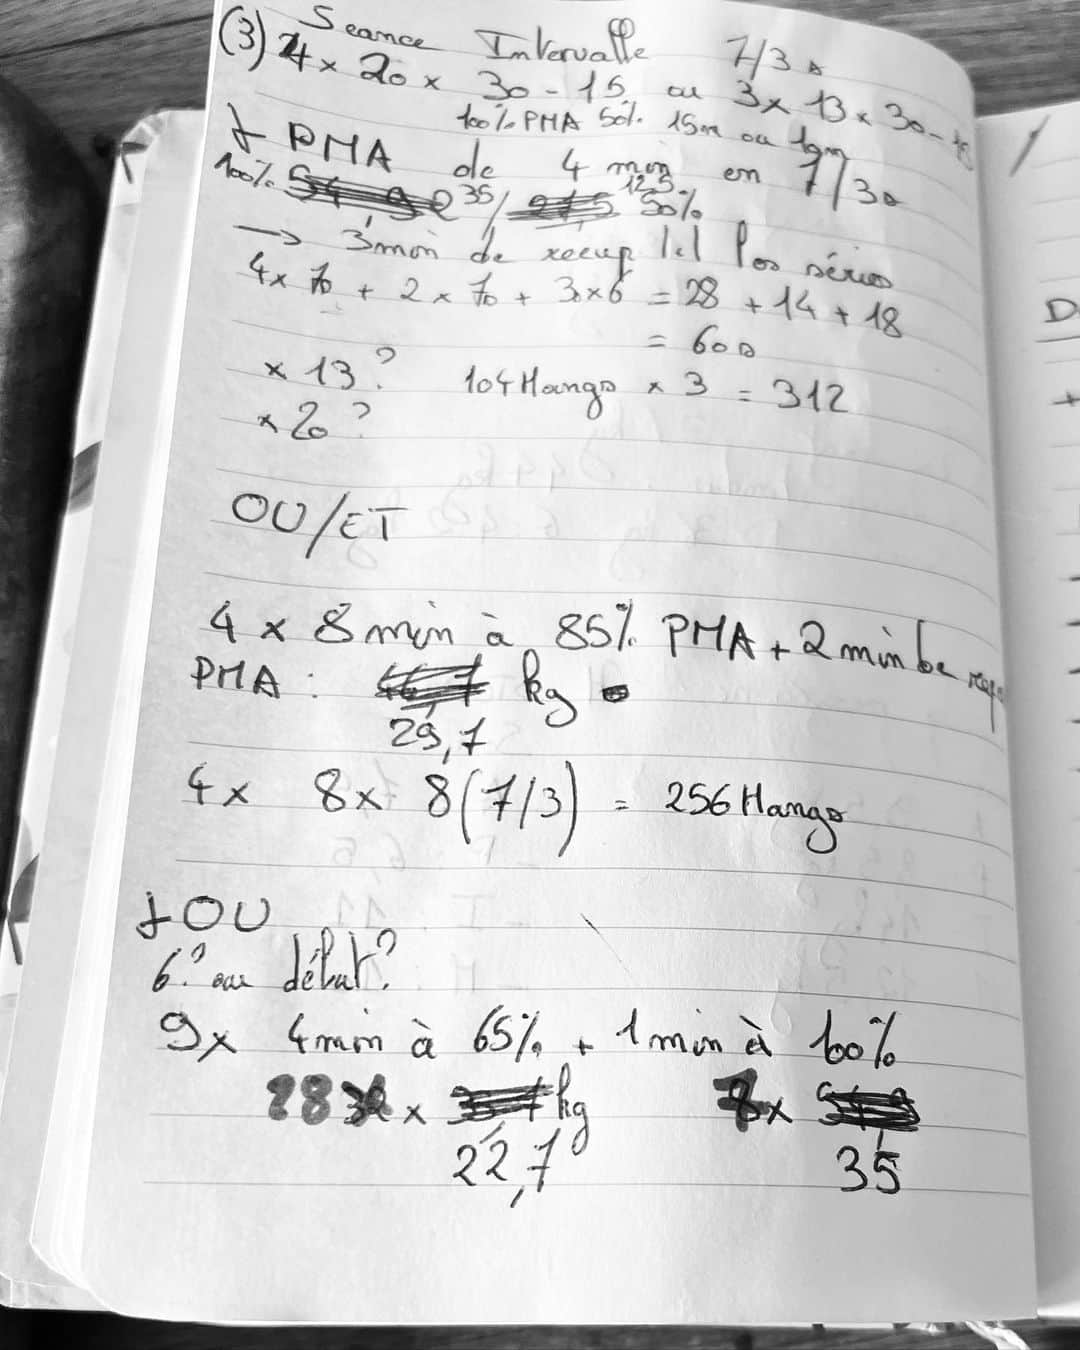 Seance Intervalle 7/3s
(3) 4 x 20 x 30 - 15 ou 3x 13 x 30 - 15
100% PMA 50% 15m ou 19m
+ PMA de 4 min en 7/3s
100% 35/ 12,5 50%
→ 3min de recup les séries
4x 7s + 2 x 7s + 3s x 6 = 28 + 14 + 18
= 60s
x 13? 104 Hangs x 3 = 312
x 20?
OU/ET
4 x 8 min à 85% PMA + 2 min de repos
PMA : kg
29,7
4x 8x 8(7/3) = 256 Hangs
+ OU
6? ou début?
9x 4min à 65% + 1 min à 100%
28 x kg 7x
22,7 35
D
+